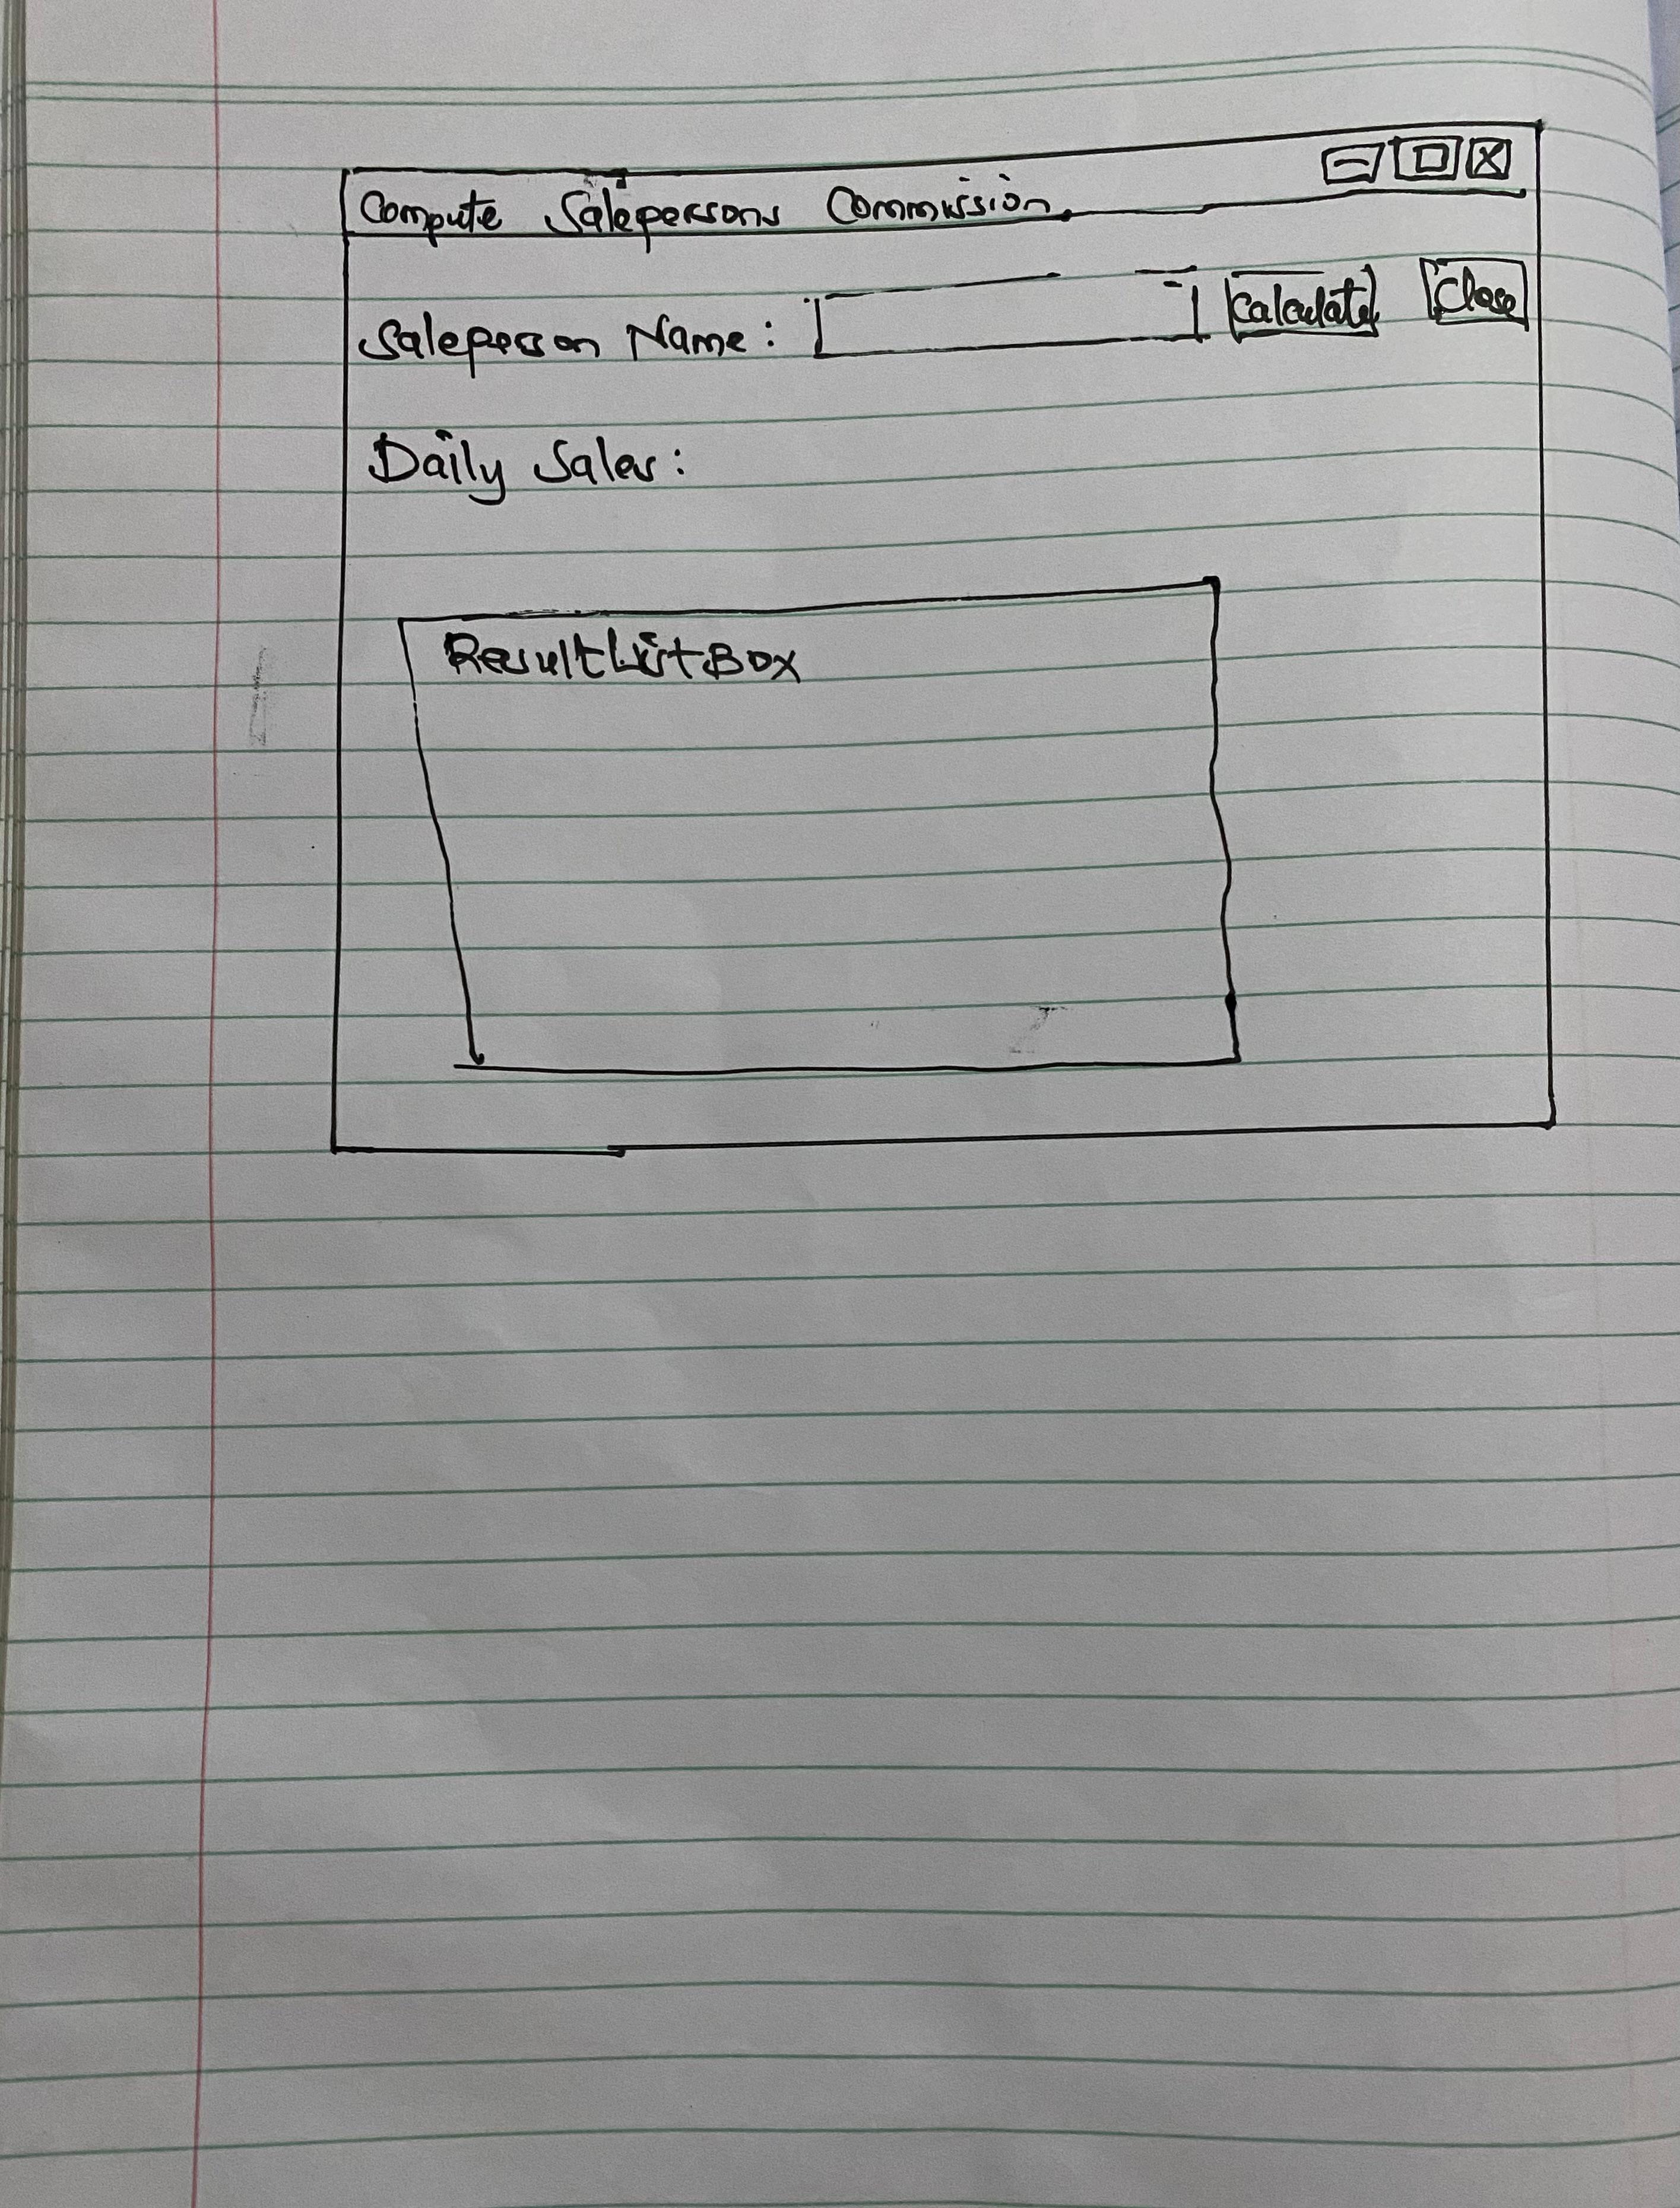 Compute Salepersons Commission
Saleperson Name: Calculate Close
Daily Sales:
ResultListBox